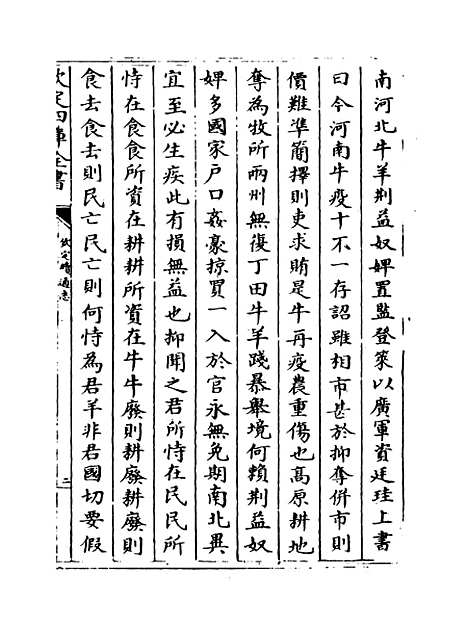 南河北牛羊荆益奴婢置監登萊以廣軍資廷珪上書
曰今河南牛疫十不一存詔雖相市甚於抑奪併市則
價難準簡擇則吏求賄是牛再疫農重傷也髙原耕地
奪為牧所兩州無復丁田牛羊踐暴舉境何賴荆益奴
婢多國家戶口姦豪掠買一入於官永無免期南北異
宜至必生疾此有損無益也抑聞之君所恃在民民所
恃在食食所資在耕耕所資在牛牛廢則耕廢耕廢則
食去食去則民亡民亡則何恃為君羊非君國切要假
欽定四庫全書
欽定續通志
二